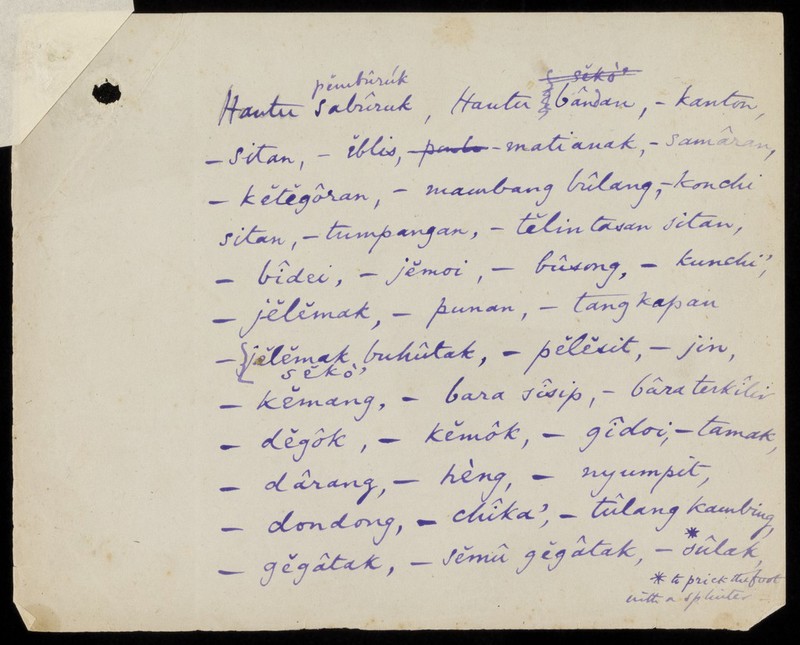 pĕmbûrúk sĕkò'
Hantu sabûruk, Hantu bândan, - kanton,
- sitan, - ĕblis, - - matianak, - samâran,
- kĕtĕgôran, - mambang bûlang, - konchi
sitan, - tumpangan, - tĕlintasan sitan,
- bîdei, - jĕmoi, - bûsong, - kunchi',
- jĕlĕmak, - punan, - tangkapan
- jĕlĕmak buhûtak, - pĕlĕsit, - jin,
sĕkò'
- kĕmang, - bara sîsip, - bâra terkîlir
- dĕgôk, - kĕmôk, - gîdoi, - tamak,
- dârang, - hèng, - nyumpit,
- dondong, - chîka', - tûlang kambing,
- gĕgâtak, - sĕmû gĕgâtak, - *sûlak,
* to prick the foot
with a splinter